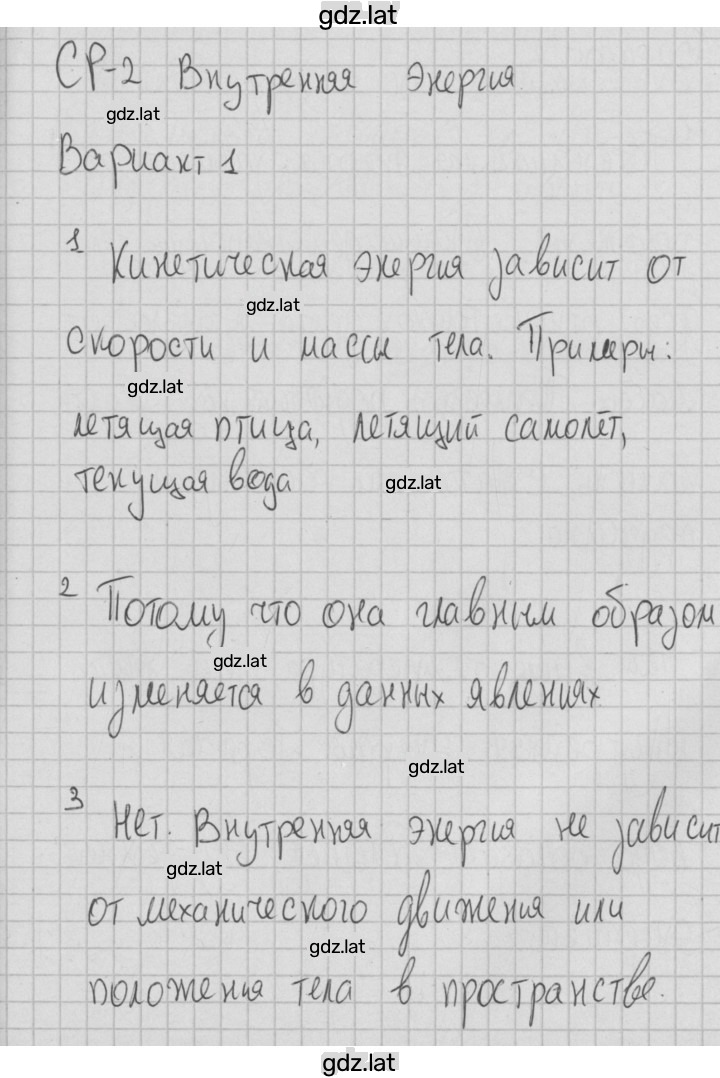 gdz.lat
СР-2 Внутренняя энергия
gdz.lat
Вариант 1
1 Кинетическая энергия зависит от
gdz.lat
скорости и массы тела. Примеры:
gdz.lat
летящая птица, летящий самолёт,
текущая вода
gdz.lat
2 Потому что она главным образом
gdz.lat
изменяется в данных явлениях
gdz.lat
3 Нет. Внутренняя энергия не зависит
gdz.lat
от механического движения или
gdz.lat
положения тела в пространстве.
gdz.lat